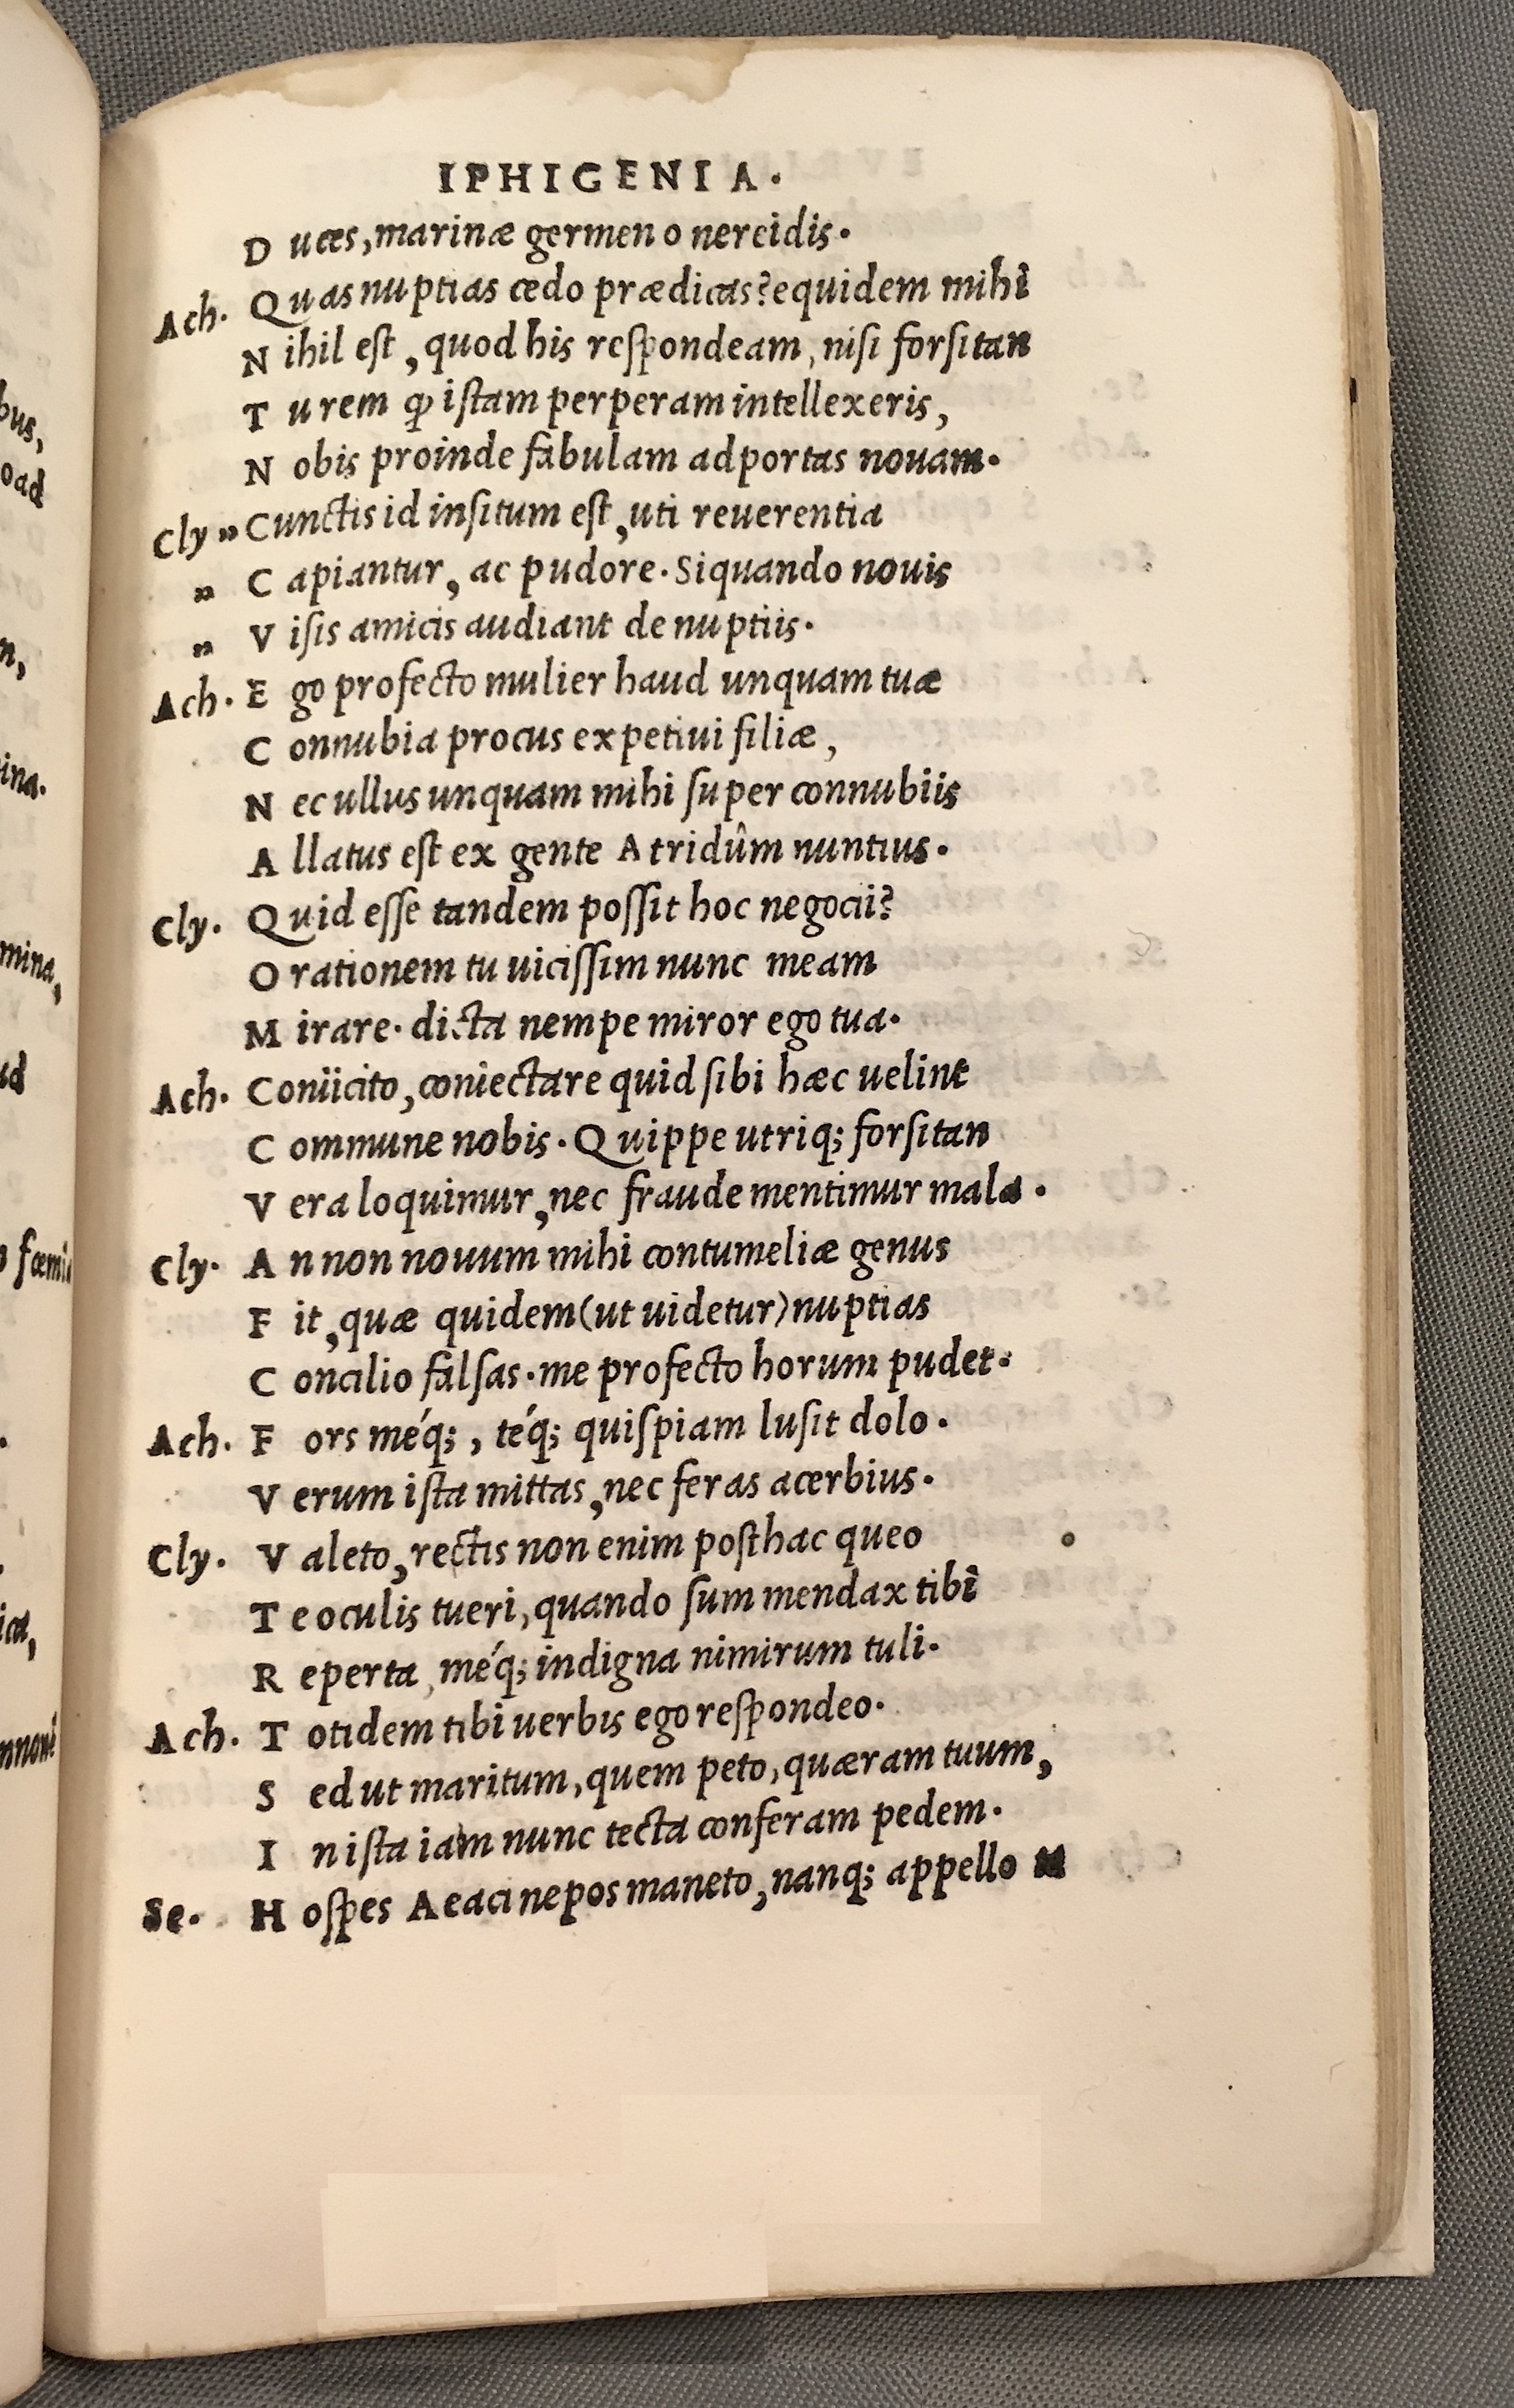 IPHIGENIA.
Duces, marinæ germen o nereidis.
Ach. Quas nuptias cedo prædicas? equidem mihi
Nihil est, quod his respondeam, nisi forsitan
Tu rem ꝙ istam perperam intellexeris,
Nobis proinde fabulam adportas nouam.
Cly „ Cunctis id insitum est, uti reuerentia
„ Capiantur, ac pudore. Siquando nouis
„ Visis amicis audiant de nuptiis.
Ach. Ego profecto mulier haud unquam tuæ
Connubia procus expetiui filiæ,
Nec ullus unquam mihi super connubiis
Allatus est ex gente Atridûm nuntius.
Cly. Quid esse tandem possit hoc negocii?
Orationem tu uicissim nunc meam
Mirare. dicta nempe miror ego tua.
Ach. Coniicito, coniectare quid sibi hæc uelint
Commune nobis. Quippe utriq; forsitan
Vera loquimur, nec fraude mentimur mala.
Cly. An non nouum mihi contumeliæ genus
Fit, quæ quidem (ut uidetur) nuptias
Concilio falsas. me profecto horum pudet.
Ach. Fors méq;, téq; quispiam lusit dolo.
Verum ista mittas, nec feras acerbius.
Cly. Valeto, rectis non enim posthac queo
Te oculis tueri, quando sum mendax tibi
Reperta, méq; indigna nimirum tuli.
Ach. Totidem tibi uerbis ego respondeo.
Sed ut maritum, quem peto, quæram tuum,
In ista iam nunc tecta conferam pedem.
Se. Hospes Aeaci nepos maneto, nanq; appello